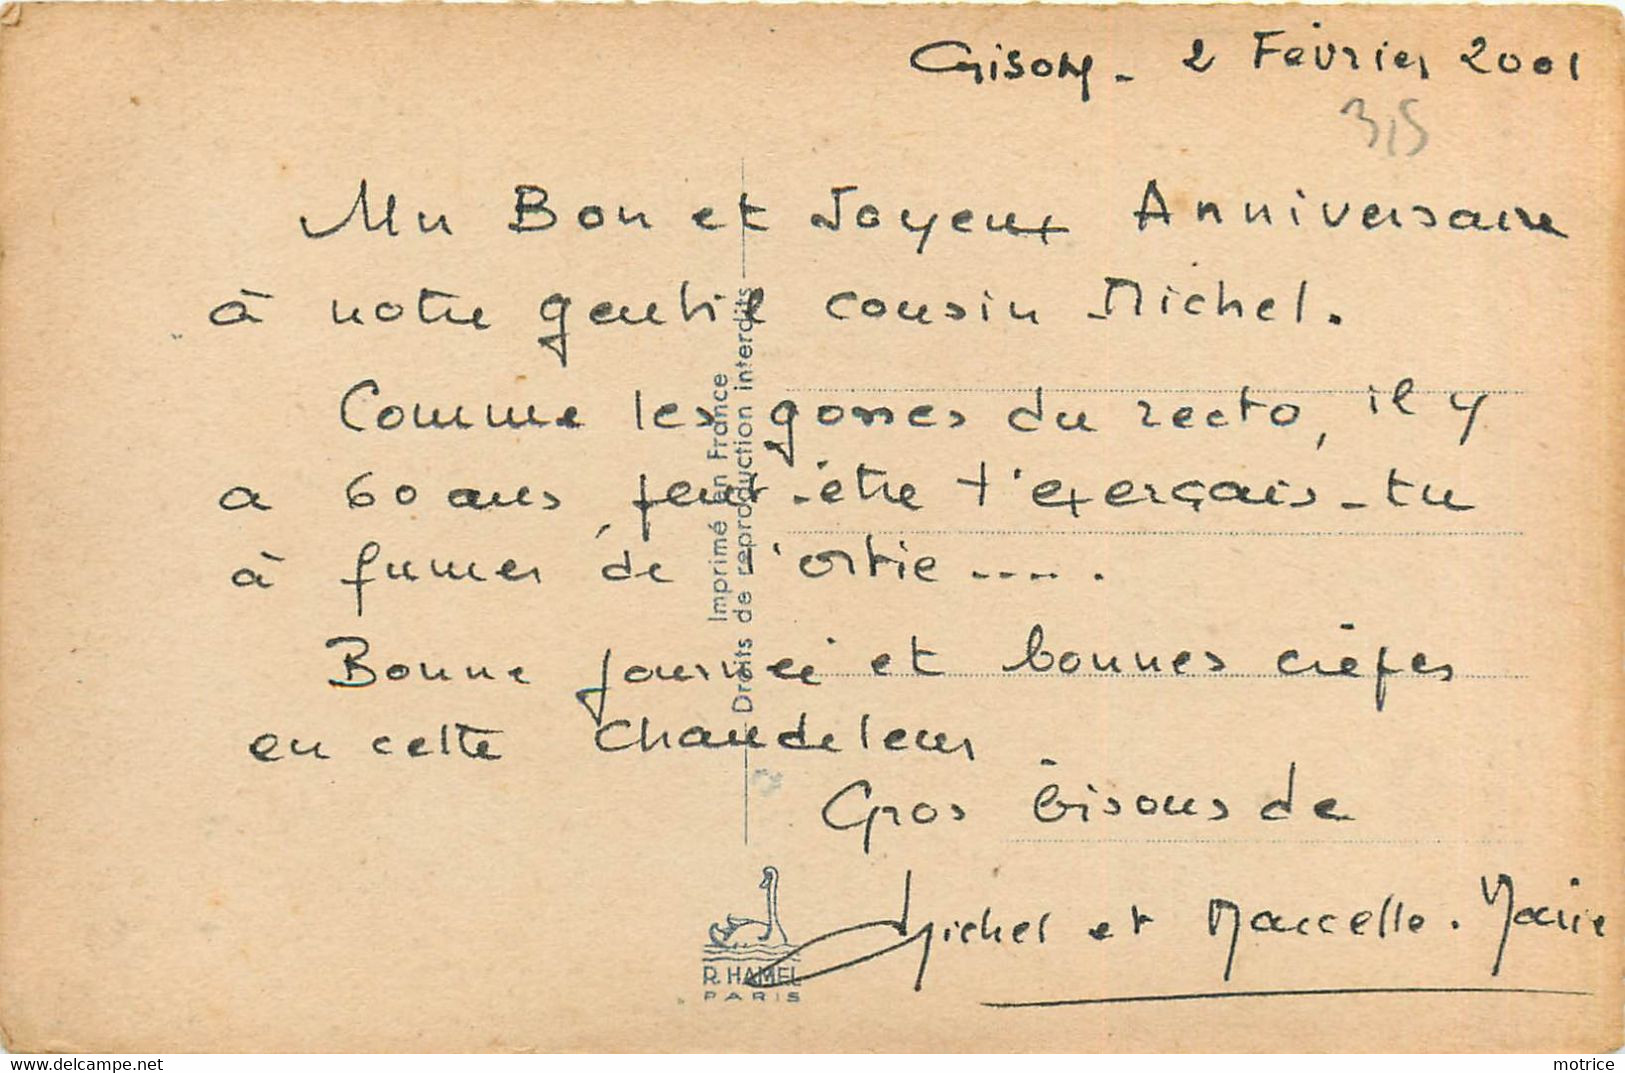 Gisors - 2 Février 2001
3,5
Un Bon et Joyeux Anniversaire
à notre gentil cousin Michel.
Comme les gosses du recto, il y
a 60 ans, peut-être t'exerçais-tu
à fumer de l'ortie .....
Bonne journée et bonnes crêpes
en cette Chandeleur
Gros bisous de
Michel et Marcelle-Marie
Imprimé en France
Droits de reproduction interdits
R. HAMEL
PARIS
https://www.delcampe.net
motrice